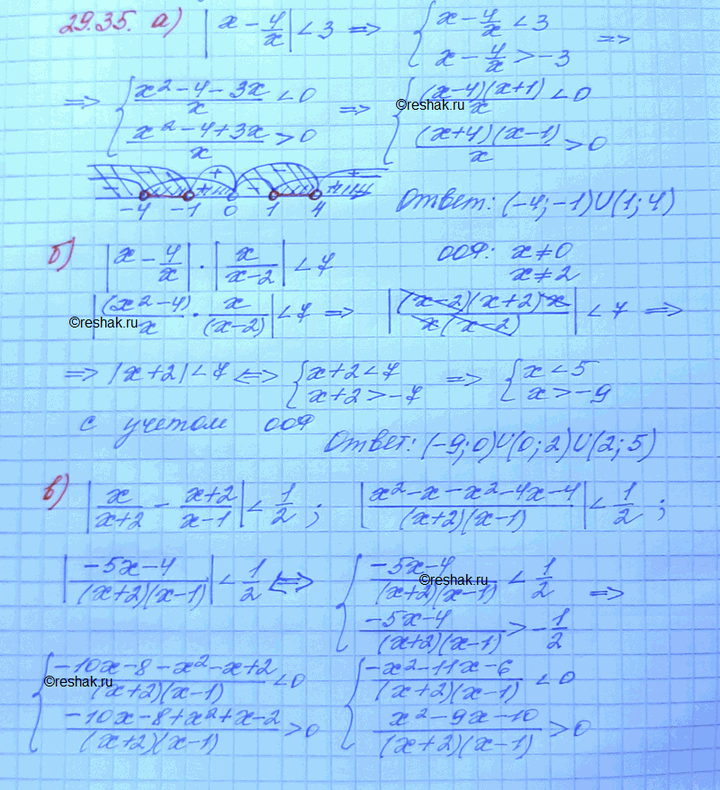 29.35. а) |x - 4/x| < 3 => { x - 4/x < 3
x - 4/x > -3 =>
=> { (x² - 4 - 3x)/x < 0
(x² - 4 + 3x)/x > 0 => { (x-4)(x+1)/x < 0
(x+4)(x-1)/x > 0
©reshak.ru
-4 -1 0 1 4
Ответ: (-4; -1)U(1; 4)
б) |x - 4/x| · |x/(x-2)| < 7
ООФ: x ≠ 0
x ≠ 2
|(x² - 4)/x · x/(x-2)| < 7 => |(x-2)(x+2)x / x(x-2)| < 7 =>
©reshak.ru
=> |x+2| < 7 <=> { x+2 < 7
x+2 > -7 => { x < 5
x > -9
с учетом ООФ
Ответ: (-9; 0)U(0; 2)U(2; 5)
в) |x/(x+2) - (x+2)/(x-1)| < 1/2 ; |(x² - x - x² - 4x - 4)/((x+2)(x-1))| < 1/2 ;
|(-5x-4)/((x+2)(x-1))| < 1/2 <=> { (-5x-4)/((x+2)(x-1)) < 1/2
(-5x-4)/((x+2)(x-1)) > -1/2 =>
©reshak.ru
{ (-10x - 8 - x² - x + 2)/((x+2)(x-1)) < 0
(-10x - 8 + x² + x - 2)/((x+2)(x-1)) > 0
{ (-x² - 11x - 6)/((x+2)(x-1)) < 0
(x² - 9x - 10)/((x+2)(x-1)) > 0
©reshak.ru